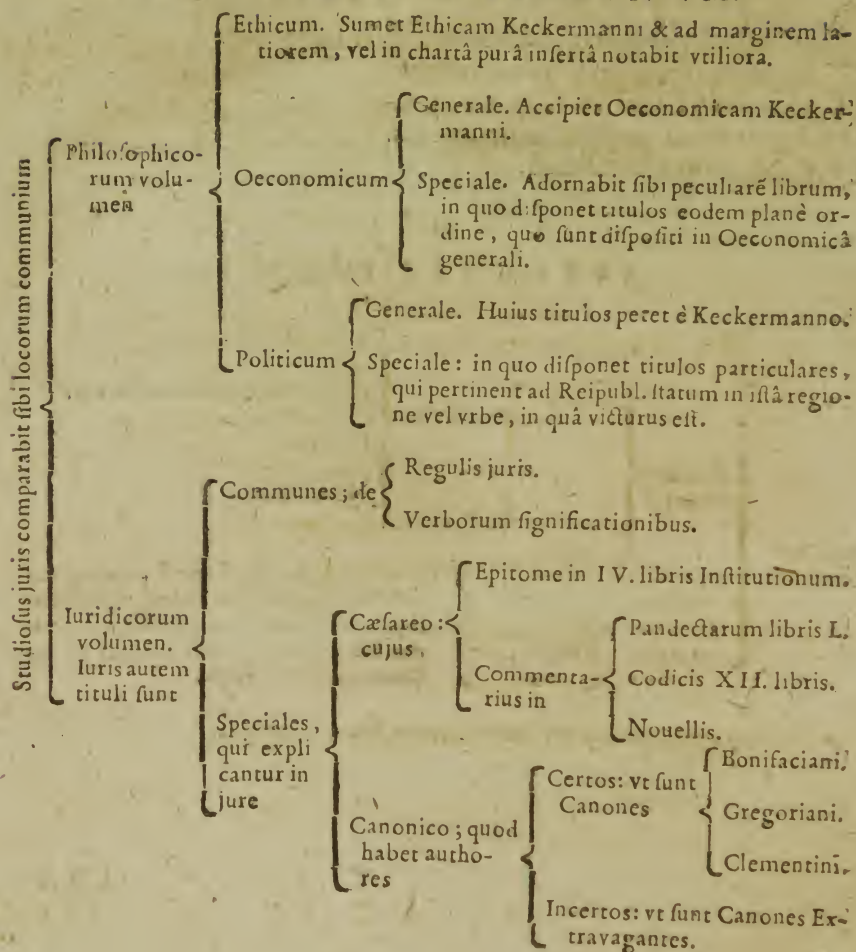 Studiosus juris comparabit sibi locorum communium
Philosophico-
rum volu-
men
Ethicum. Sumet Ethicam Keckermanni & ad marginem la-
tiorem, vel in chartâ purâ insertâ notabit vtiliora.
Oeconomicum
Generale. Accipiet Oeconomicam Kecker-
manni.
Speciale. Adornabit sibi peculiarē librum,
in quo disponet titulos eodem planè or-
dine, quo sunt dispositi in Oeconomicâ
generali.
Politicum
Generale. Huius titulos petet è Keckermanno.
Speciale: in quo disponet titulos particulares,
qui pertinent ad Reipubl. statum in istâ regio-
ne vel vrbe, in quâ victurus est.
Iuridicorum
volumen.
Iuris autem
tituli sunt
Communes; de
Regulis juris.
Verborum significationibus.
Speciales,
qui expli
cantur in
jure
Cæsareo:
cujus,
Epitome in IV. libris Institutionum.
Commenta-
rius in
Pandectarum libris L.
Codicis XII. libris.
Nouellis.
Canonico; quod
habet autho-
res
Certos: vt sunt
Canones
Bonifaciani.
Gregoriani.
Clementini.
Incertos: vt sunt Canones Ex-
travagantes.